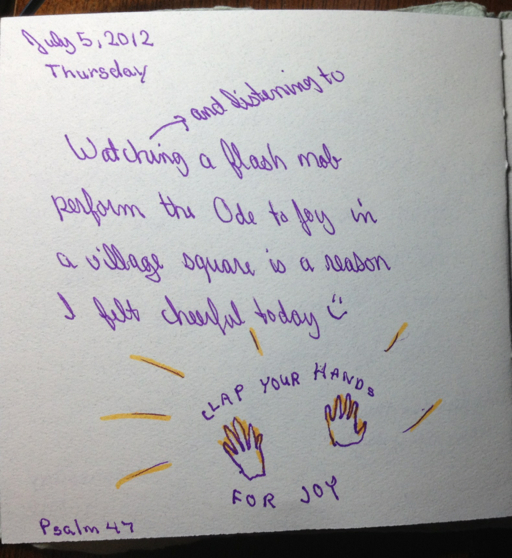 July 5, 2012
Thursday
and listening to
Watching a flash mob
perform the Ode to Joy in
a village square is a reason
I felt cheerful today
CLAP YOUR HANDS
FOR JOY
Psalm 47